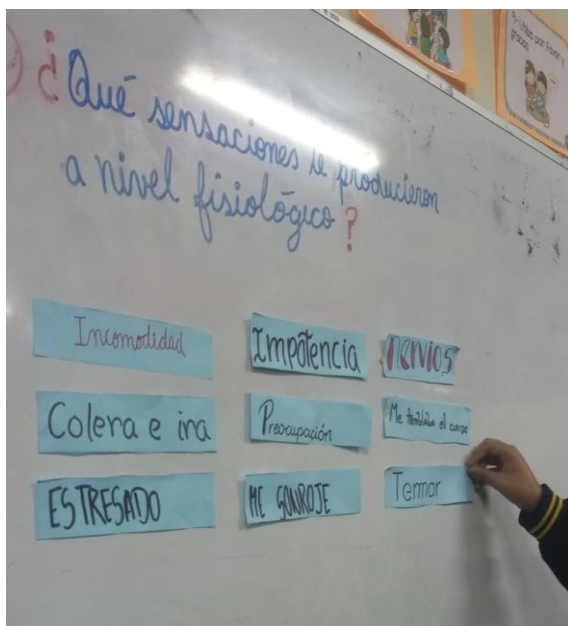 ¿Qué sensaciones te producieron
a nivel fisiológico?
Incomodidad
Impotencia
nervios
Colera e ira
Preocupación
Me temblaba el cuerpo
ESTRESADO
ME SONROJE
Termor
9.- Utiliza por favor y
gracias.